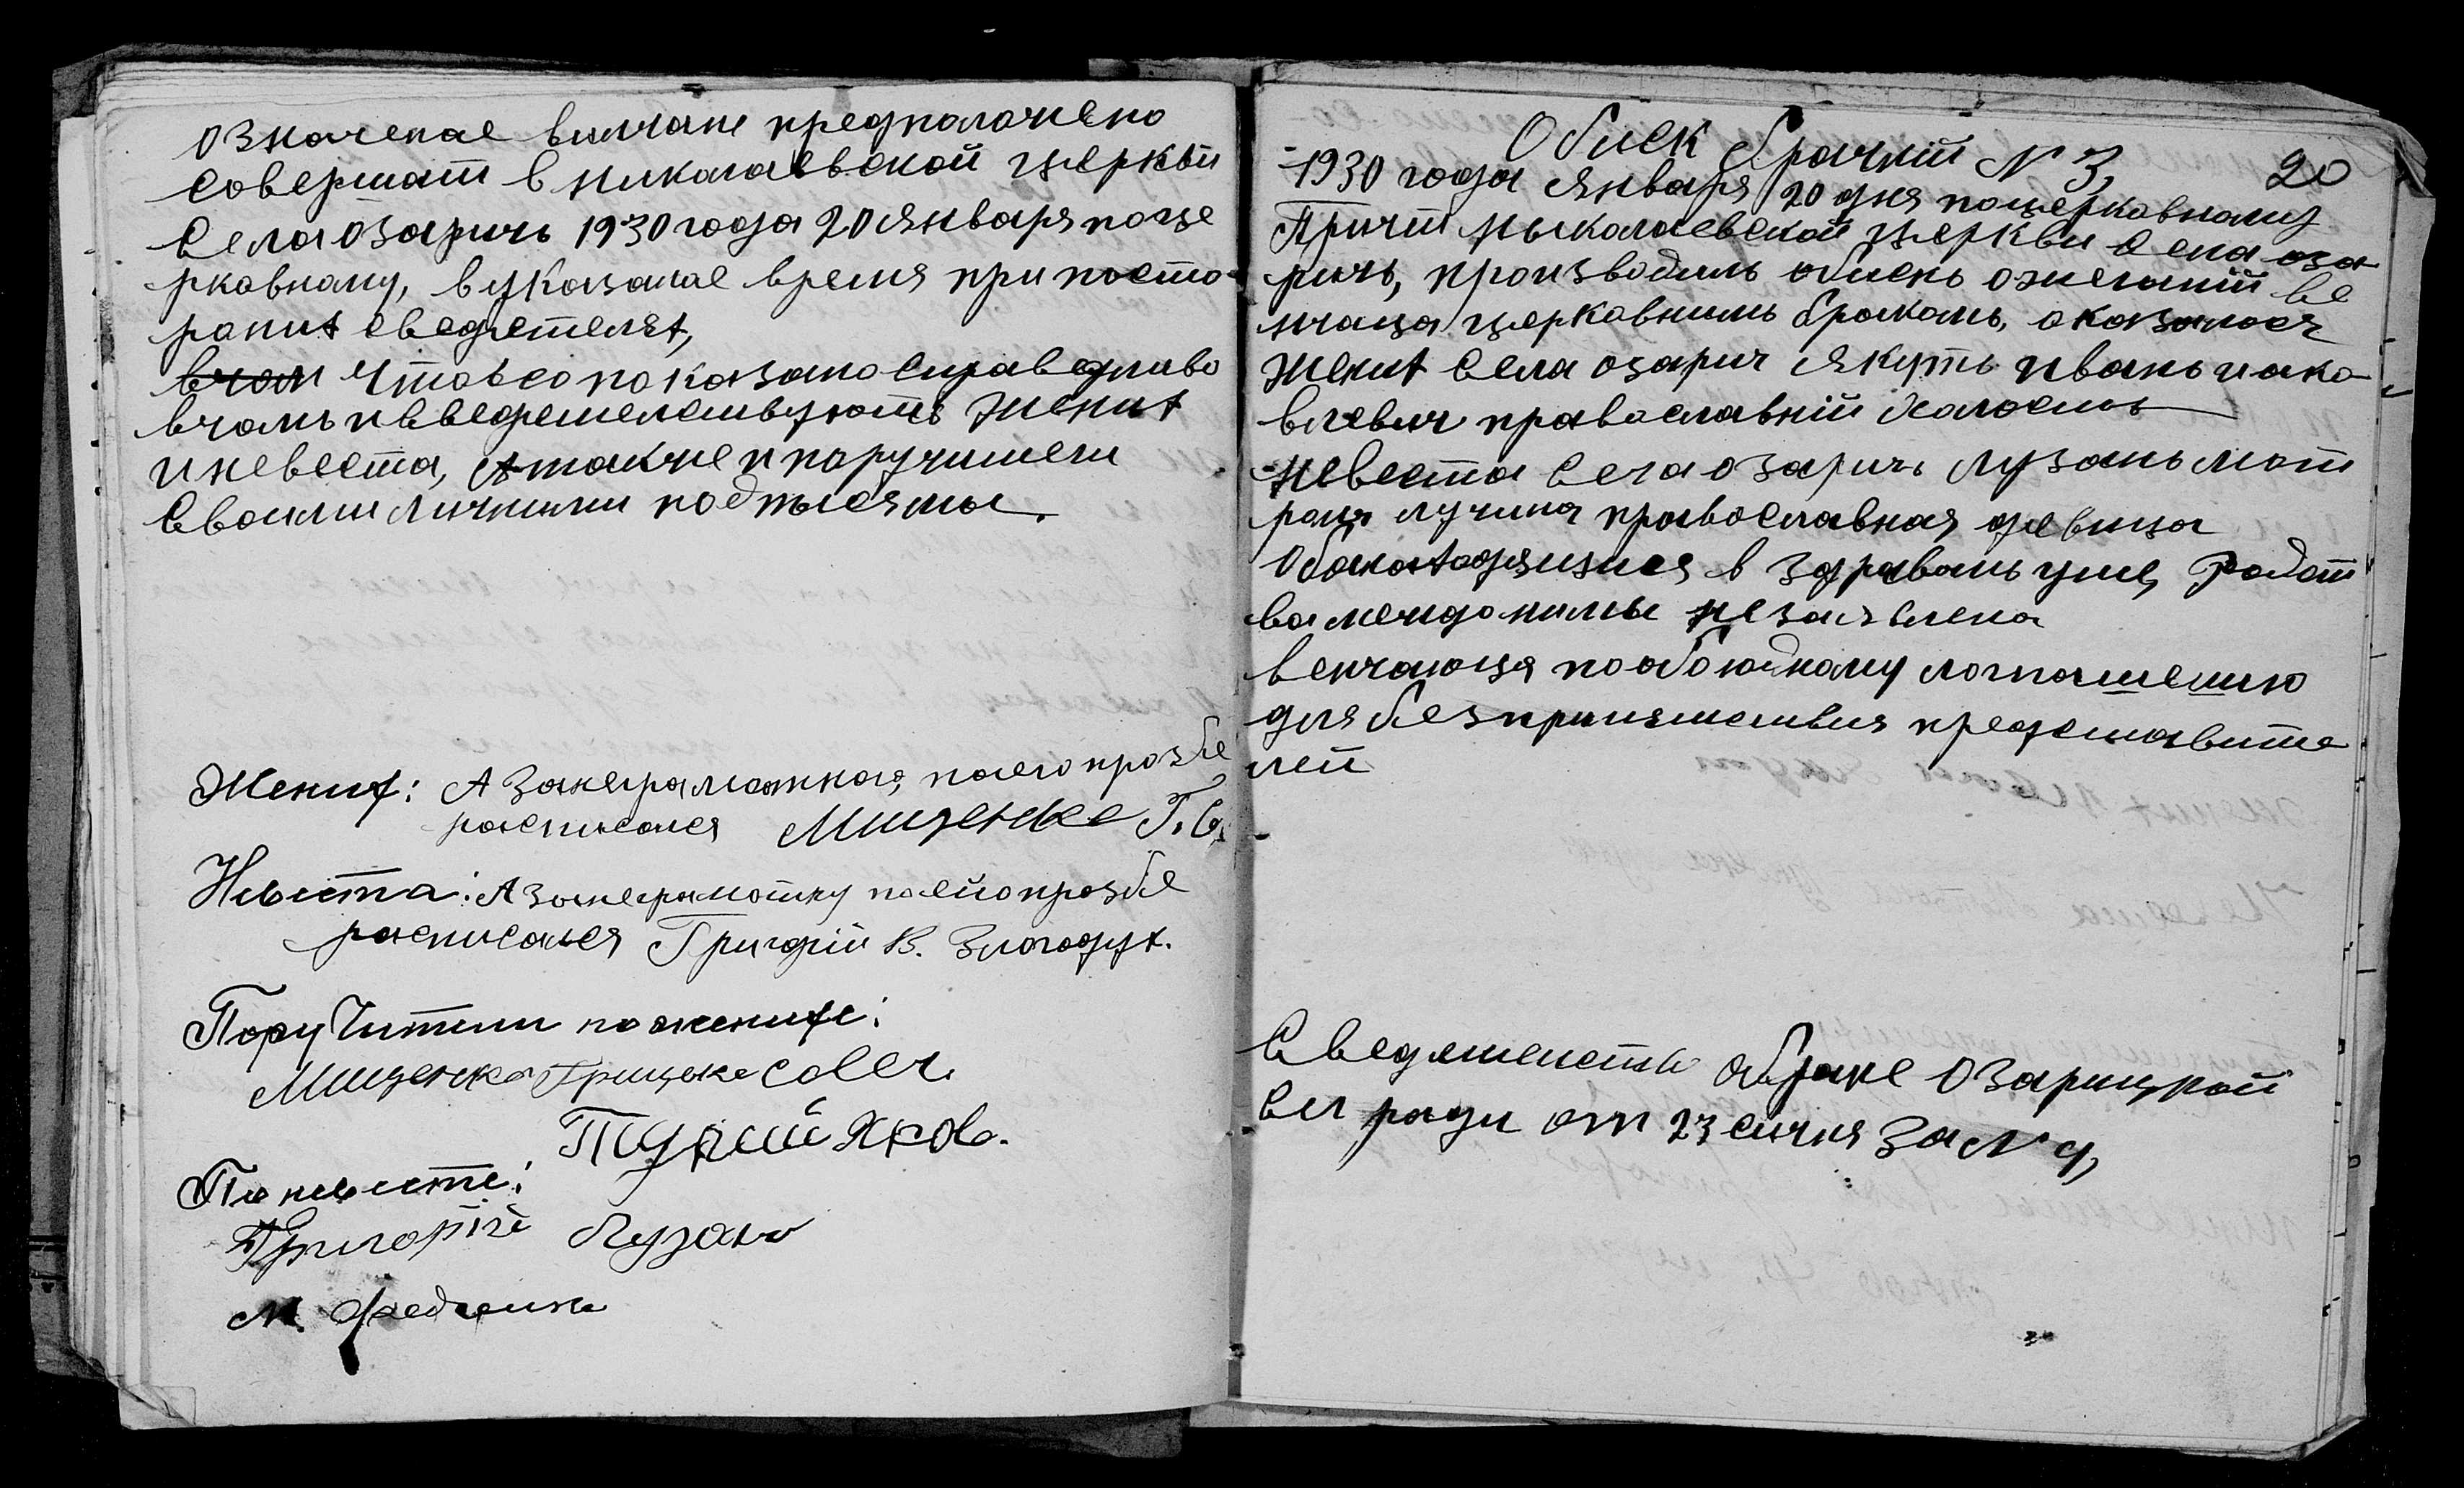 означеное вичане предпалачено
Совершат в николаевской церкви
Села озаричь 1930 года 20 января поце
ркавнаму, в указаное время при посто
роних сведетелях,
вчом что всо показано справедливо
вчомь и сведетелствують жених
и невеста, а также и паручители
Своими личными подписямы.
Жених: А за неграматнаго, по его прозбе
расписался Мищенко Г. С.
Невеста: А за неграмотну по ейо прозбе
расписался Григорій В. Злотодух.
Поручители по женихе:
Мищенко Грицько Савеч.
Яков.
По невесте:
Григорій Лузань
М. Федченко
Обиск брачний N 3,
20
1930 года января 20 дня поцеркавнаму
Причт ныколаевской церкви Села оза
ричь, производиль обиск ожелании ве
нчаца церкавнимь бракамь, оказалося
жених Села озарич Якуть ивань иако
влевич православній холость
невеста Села озаричь лузань мат
рона лучина православная девица
Оба находящиися в здравамь уме, родст
ва между нимы незаявлена
венчаюця по обоюдному сограшению
для безприпятствия представите
лей
Сведетелств обраке Озарицкой
Сел ради от 23 сичня за N 9,